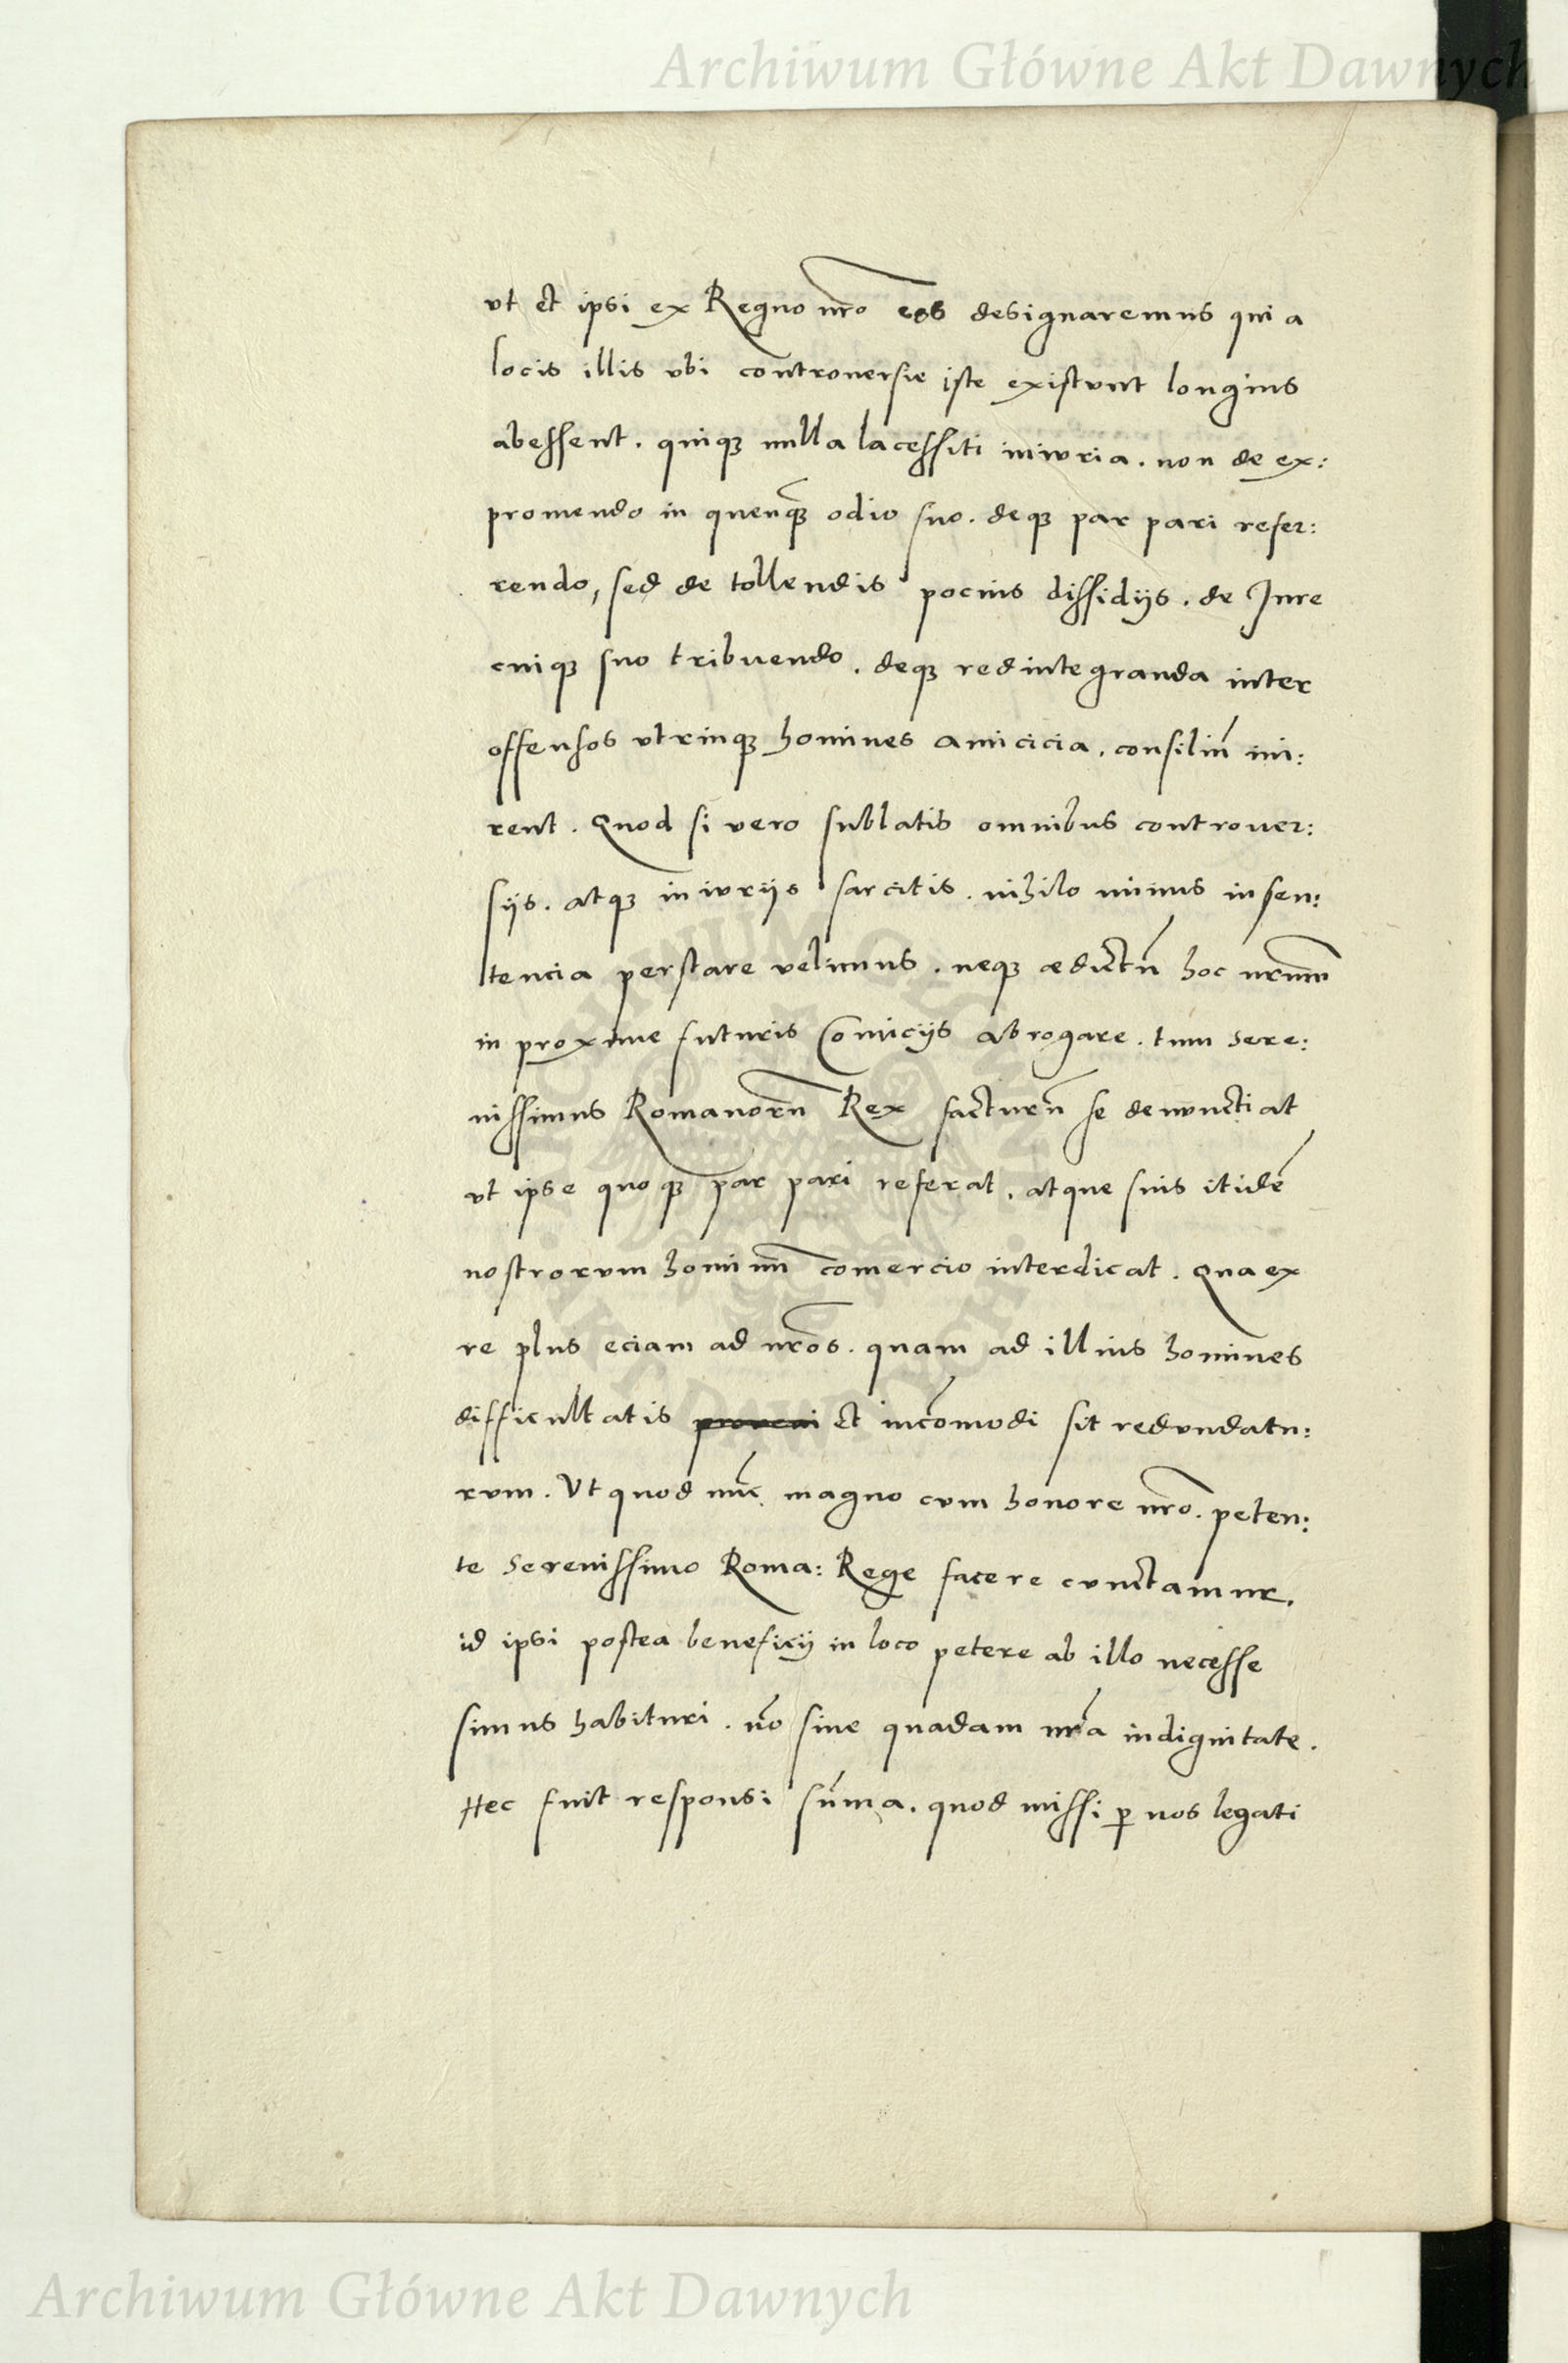 Archiwum Główne Akt Dawnych
vt et ipsi ex Regno nr̃o eos designaremus qui a
locis illis vbi controuersie iste existunt longius
abessent. quiqꝫ nulla lacessiti iniuria. non de ex:
promendo in quenq̃ꝫ odio suo. deqꝫ par pari refer:
rendo, sed de tollendis pocius dissidijs. de Jure
cuiqꝫ suo tribuendo. deqꝫ redintegranda inter
offensos vtrinqꝫ homines amicicia. consiliũ ini:
rent. Quod si vero sublatis omnibus controuer:
sijs. atqꝫ iniurijs sarcitis. nihilo minus in sen:
tencia perstare velimus. neqꝫ ædictũ hoc nr̃um
in proxime futuris Comicijs abrogare. tum Sere:
nissimus Romanorũ Rex facturũ se denunctiat
vt ipse quoqꝫ par pari referat. atque suis itidẽ
nostrorum hominũ comercio interdicat. Qua ex
re plus eciam ad nr̃os. quam ad illius homines
difficultatis et incõmodi sit redundatu:
rum. Vt quod nũc magno cum honore nr̃o. peten:
te Serenissimo Roma: Rege facere cunctamur.
id ipsi postea beneficij in loco petere ab illo necesse
simus habituri. nõ sine quadam nr̃a indignitate.
Hec fuit responsi sũma. quod missi ꝑ nos legati
ARCHIWUM GŁÓWNE · AKT DAWNYCH ·
Archiwum Główne Akt Dawnych